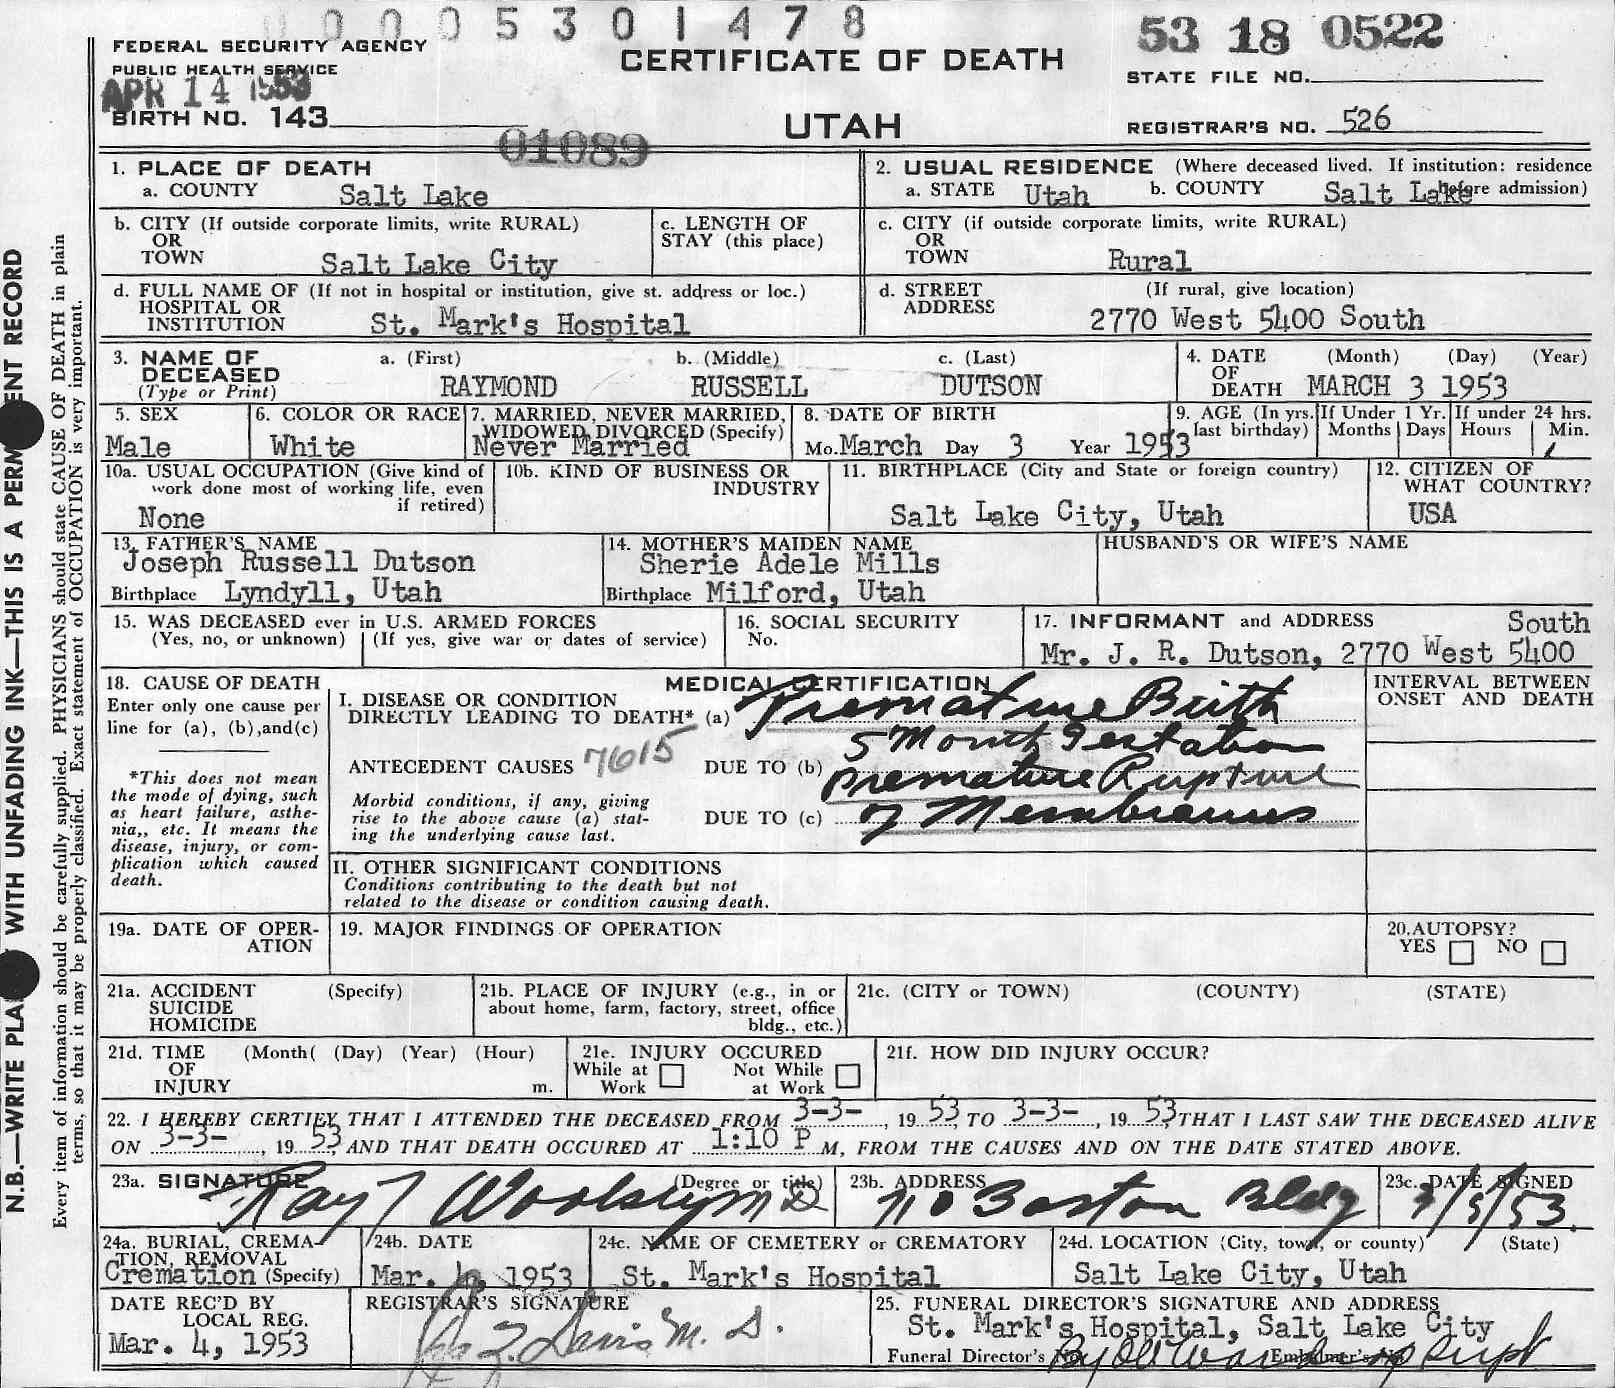 0005301478
53 18 0522
FEDERAL SECURITY AGENCY
PUBLIC HEALTH SERVICE
CERTIFICATE OF DEATH
STATE FILE NO.
APR 14 1953
BIRTH NO. 143
01089
UTAH
REGISTRAR'S NO. 526
1. PLACE OF DEATH
a. COUNTY Salt Lake
2. USUAL RESIDENCE (Where deceased lived. If institution: residence before admission)
a. STATE Utah b. COUNTY Salt Lake
b. CITY (If outside corporate limits, write RURAL)
OR
TOWN Salt Lake City
c. LENGTH OF
STAY (this place)
c. CITY (if outside corporate limits, write RURAL)
OR
TOWN Rural
d. FULL NAME OF (If not in hospital or institution, give st. address or loc.)
HOSPITAL OR
INSTITUTION St. Mark's Hospital
d. STREET (If rural, give location)
ADDRESS
2770 West 5400 South
3. NAME OF DECEASED
(Type or Print)
a. (First) b. (Middle) c. (Last)
RAYMOND RUSSELL DUTSON
4. DATE (Month) (Day) (Year)
OF
DEATH MARCH 3 1953
5. SEX
Male
6. COLOR OR RACE
White
7. MARRIED, NEVER MARRIED,
WIDOWED, DIVORCED (Specify)
Never Married
8. DATE OF BIRTH
Mo. March Day 3 Year 1953
9. AGE (In yrs. last birthday)
If Under 1 Yr.
Months Days
If under 24 hrs.
Hours Min.
10a. USUAL OCCUPATION (Give kind of
work done most of working life, even
if retired)
None
10b. KIND OF BUSINESS OR
INDUSTRY
11. BIRTHPLACE (City and State or foreign country)
Salt Lake City, Utah
12. CITIZEN OF
WHAT COUNTRY?
USA
13. FATHER'S NAME
Joseph Russell Dutson
Birthplace Lyndyll, Utah
14. MOTHER'S MAIDEN NAME
Sherie Adele Mills
Birthplace Milford, Utah
HUSBAND'S OR WIFE'S NAME
15. WAS DECEASED ever in U.S. ARMED FORCES
(Yes, no, or unknown) (If yes, give war or dates of service)
16. SOCIAL SECURITY
No.
17. INFORMANT and ADDRESS South
Mr. J. R. Dutson, 2770 West 5400
18. CAUSE OF DEATH
Enter only one cause per
line for (a), (b),and(c)
*This does not mean
the mode of dying, such
as heart failure, asthe-
nia,, etc. It means the
disease, injury, or com-
plication which caused
death.
MEDICAL CERTIFICATION
I. DISEASE OR CONDITION
DIRECTLY LEADING TO DEATH* (a) Premature Birth
5 Month Gestation
ANTECEDENT CAUSES 7615 DUE TO (b) Premature Rupture
Morbid conditions, if any, giving
rise to the above cause (a) stat-
ing the underlying cause last.
DUE TO (c) of Membranes
INTERVAL BETWEEN
ONSET AND DEATH
II. OTHER SIGNIFICANT CONDITIONS
Conditions contributing to the death but not
related to the disease or condition causing death.
19a. DATE OF OPER-
ATION
19. MAJOR FINDINGS OF OPERATION
20.AUTOPSY?
YES NO
21a. ACCIDENT (Specify)
SUICIDE
HOMICIDE
21b. PLACE OF INJURY (e.g., in or
about home, farm, factory, street, office
bldg., etc.)
21c. (CITY or TOWN) (COUNTY) (STATE)
21d. TIME (Month( (Day) (Year) (Hour)
OF
INJURY m.
21e. INJURY OCCURED
While at Work Not While at Work
21f. HOW DID INJURY OCCUR?
22. I HEREBY CERTIFY THAT I ATTENDED THE DECEASED FROM 3-3-, 19 53, TO 3-3-, 19 53, THAT I LAST SAW THE DECEASED ALIVE
ON 3-3-, 19 53, AND THAT DEATH OCCURED AT 1:10 P M, FROM THE CAUSES AND ON THE DATE STATED ABOVE.
23a. SIGNATURE (Degree or title)
Ray T Woolsey MD
23b. ADDRESS
710 Boston Bldg
23c. DATE SIGNED
3/5/53.
24a. BURIAL, CREMA-
TION, REMOVAL
Cremation (Specify)
24b. DATE
Mar. 1953
24c. NAME OF CEMETERY or CREMATORY
St. Mark's Hospital
24d. LOCATION (City, town, or county) (State)
Salt Lake City, Utah
DATE REC'D BY
LOCAL REG.
Mar. 4, 1953
REGISTRAR'S SIGNATURE
Davis M. D.
25. FUNERAL DIRECTOR'S SIGNATURE AND ADDRESS
St. Mark's Hospital, Salt Lake City
Funeral Director's Embalmer's
By Supt
N.B.—WRITE WITH UNFADING INK—THIS IS A RECORD
Every item of information should be carefully supplied. PHYSICIANS should state CAUSE OF DEATH in plain
terms, so that it may be properly classified. Exact statement of OCCUPATION is very important.